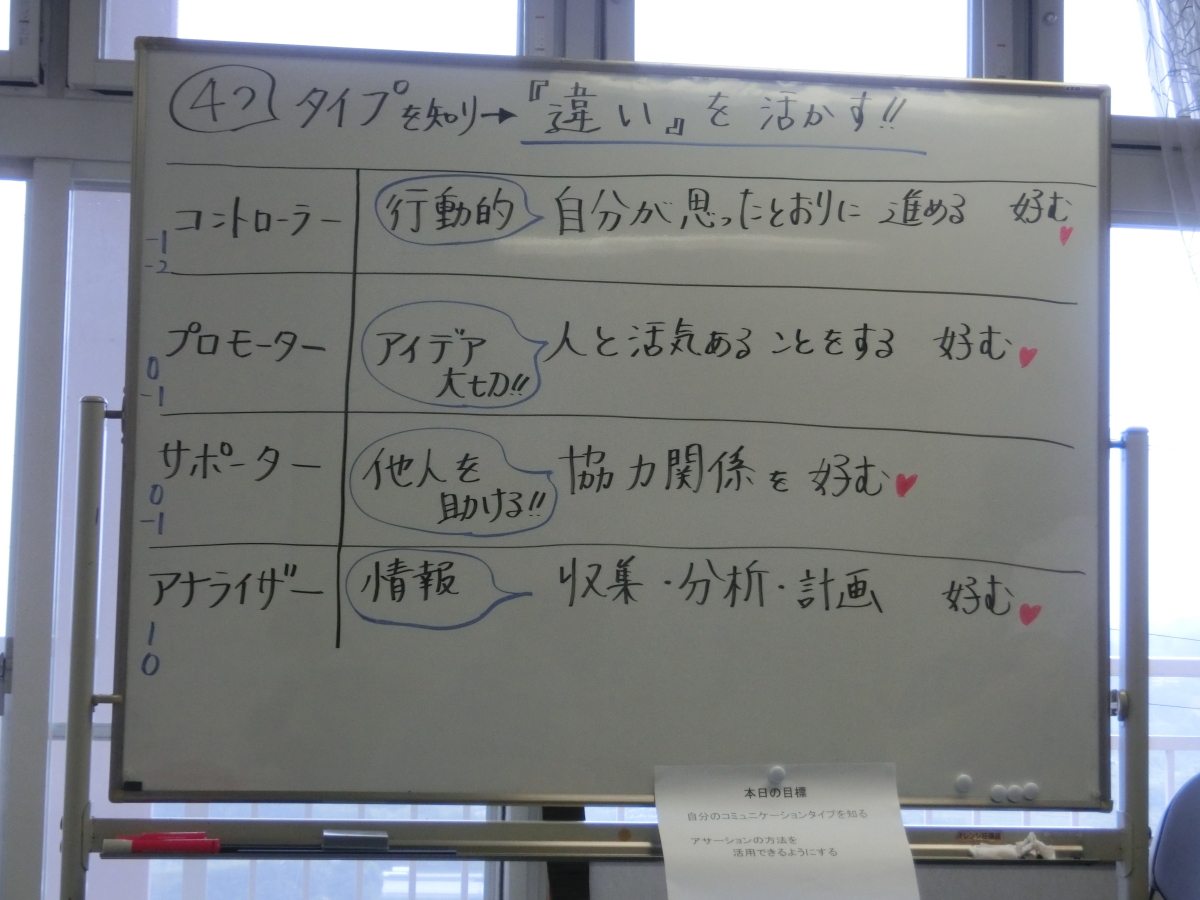 4つ タイプを知り→『違い』を活かす!!
コントローラー 行動的 自分が思ったとおりに 進める 好む
-1
-2
プロモーター アイデア 大切!! 人と活気あることをする 好む
0
-1
サポーター 他人を 助ける!! 協力関係を 好む
0
-1
アナライザー 情報 収集・分析・計画 好む
1
0
本日の目標
自分のコミュニケーションタイプを知る
アサーションの方法を
活用できるようにする